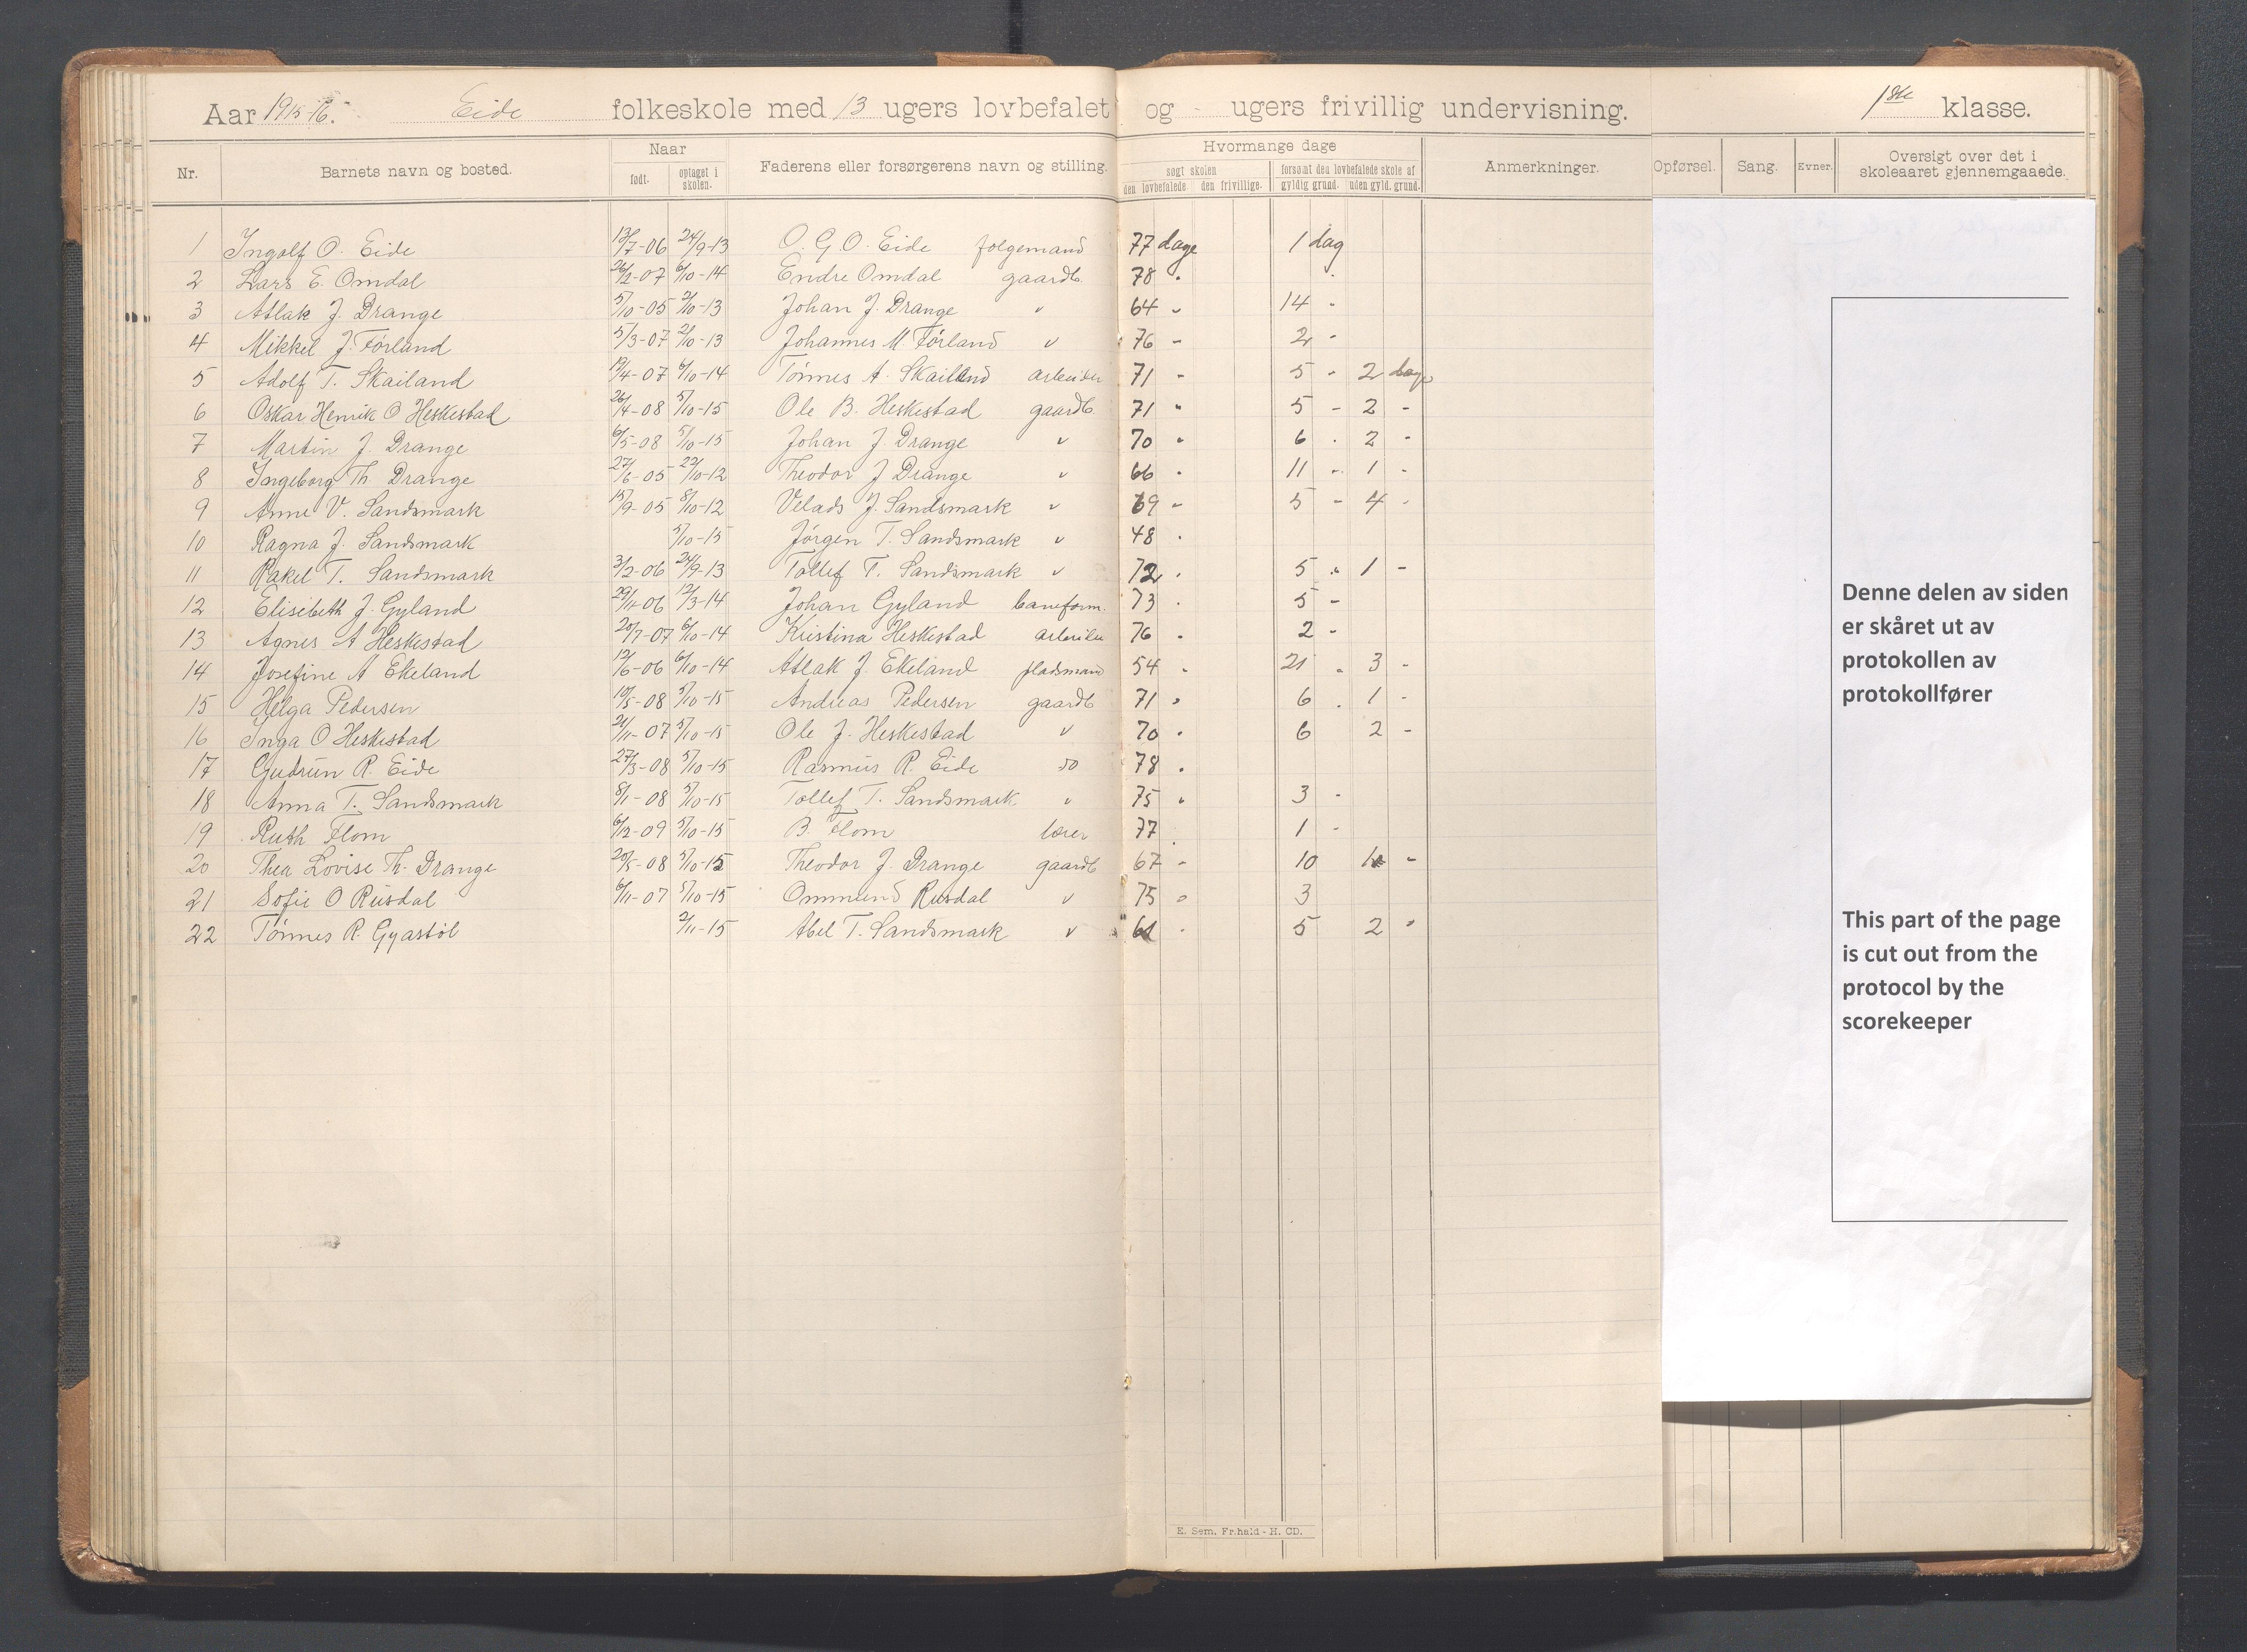 Aar 1915-16. Eide folkeskole med 13 ugers lovbefalet og - ugers frivillig undervisning. 1ste klasse.
Nr. Barnets navn og bosted. Naar født. optaget i skolen. Faderens eller forsørgerens navn og stilling. Hvormange dage søgt skolen den lovbefalede. den frivillige. forsømt den lovbefalede skole af gyldig grund. uden gyld. grund. Anmerkninger. Opførsel. Sang. Evner. Oversigt over det i skoleaaret gjennemgaaede.
1 Ingolf O. Eide 13/7-06 24/9-13 O. G. O. Eide folgemand 77 dage 1 dag
2 Lars E. Omdal 26/2-07 6/10-14 Endre Omdal gaardb. 78 "
3 Atlak J. Drange 5/10-05 2/10-13 Johan J. Drange " 64 " 14 "
4 Mikkel J. Førland 5/3-07 2/10-13 Johannes M. Førland " 76 - 2 -
5 Adolf T. Skailand 19/4-07 6/10-14 Tönnes A. Skailand arbeider 71 - 5 - 2 dage
6 Oskar Henrik O Heskestad 26/4-08 5/10-15 Ole B. Heskestad gaardb. 71 " 5 - 2 -
7 Martin J. Drange 6/5-08 5/10-15 Johan J Drange " 70 " 6 . 2 -
8 Ingeborg Th. Drange 27/6-05 22/10-12 Theodor J Drange " 66 . 11 - 1 -
9 Anne V. Sandsmark 15/9-05 8/10-12 Velads J. Sandsmark " 69 - 5 - 4 -
10 Ragna J. Sandsmark 5/10-15 Jörgen T. Sandsmark " 48 .
11 Rakel T. Sandsmark 3/2-06 24/9-13 Tollef T. Sandsmark " 72 . 5 " 1 -
12 Elisebeth J. Gyland 29/11-06 12/3-14 Johan Gyland baneform. 73 . 5 -
13 Agnes A Heskestad 20/7-07 6/10-14 Kristina Heskestad arbeider 76 . 2 -
14 Josefine A Ekeland 12/6-06 6/10-14 Atlak J. Ekeland pladsmand 54 . 21 . 3 -
15 Helga Pedersen 10/5-08 5/10-15 Andreas Pedersen gaardb 71 " 6 . 1 -
16 Inga O Heskestad 21/11-07 5/10-15 Ole J. Heskestad " 70 . 6 2 -
17 Gudrun R. Eide 27/3-08 5/10-15 Rasmus R. Eide do 78 .
18 Anna T. Sandsmark 8/1-08 5/10-15 Tollef T. Sandsmark " 75 " 3 -
19 Ruth Flom 6/12-09 5/10-15 B. Flom lærer 77 1 -
20 Thea Lovise Th. Drange 20/5-08 5/10-15 Theodor J. Drange gaardb 67 - 10 1 -
21 Sofie O Rusdal 6/11-07 5/10-15 Ommund Rusdal " 75 " 3
22 Tönnes R. Gyastöl 2/11-15 Abel T. Sandsmark " 61 . 5 2 "
Denne delen av siden
er skåret ut av
protokollen av
protokollfører
This part of the page
is cut out from the
protocol by the
scorekeeper
E. Sem. Fr.hald - H. CD.